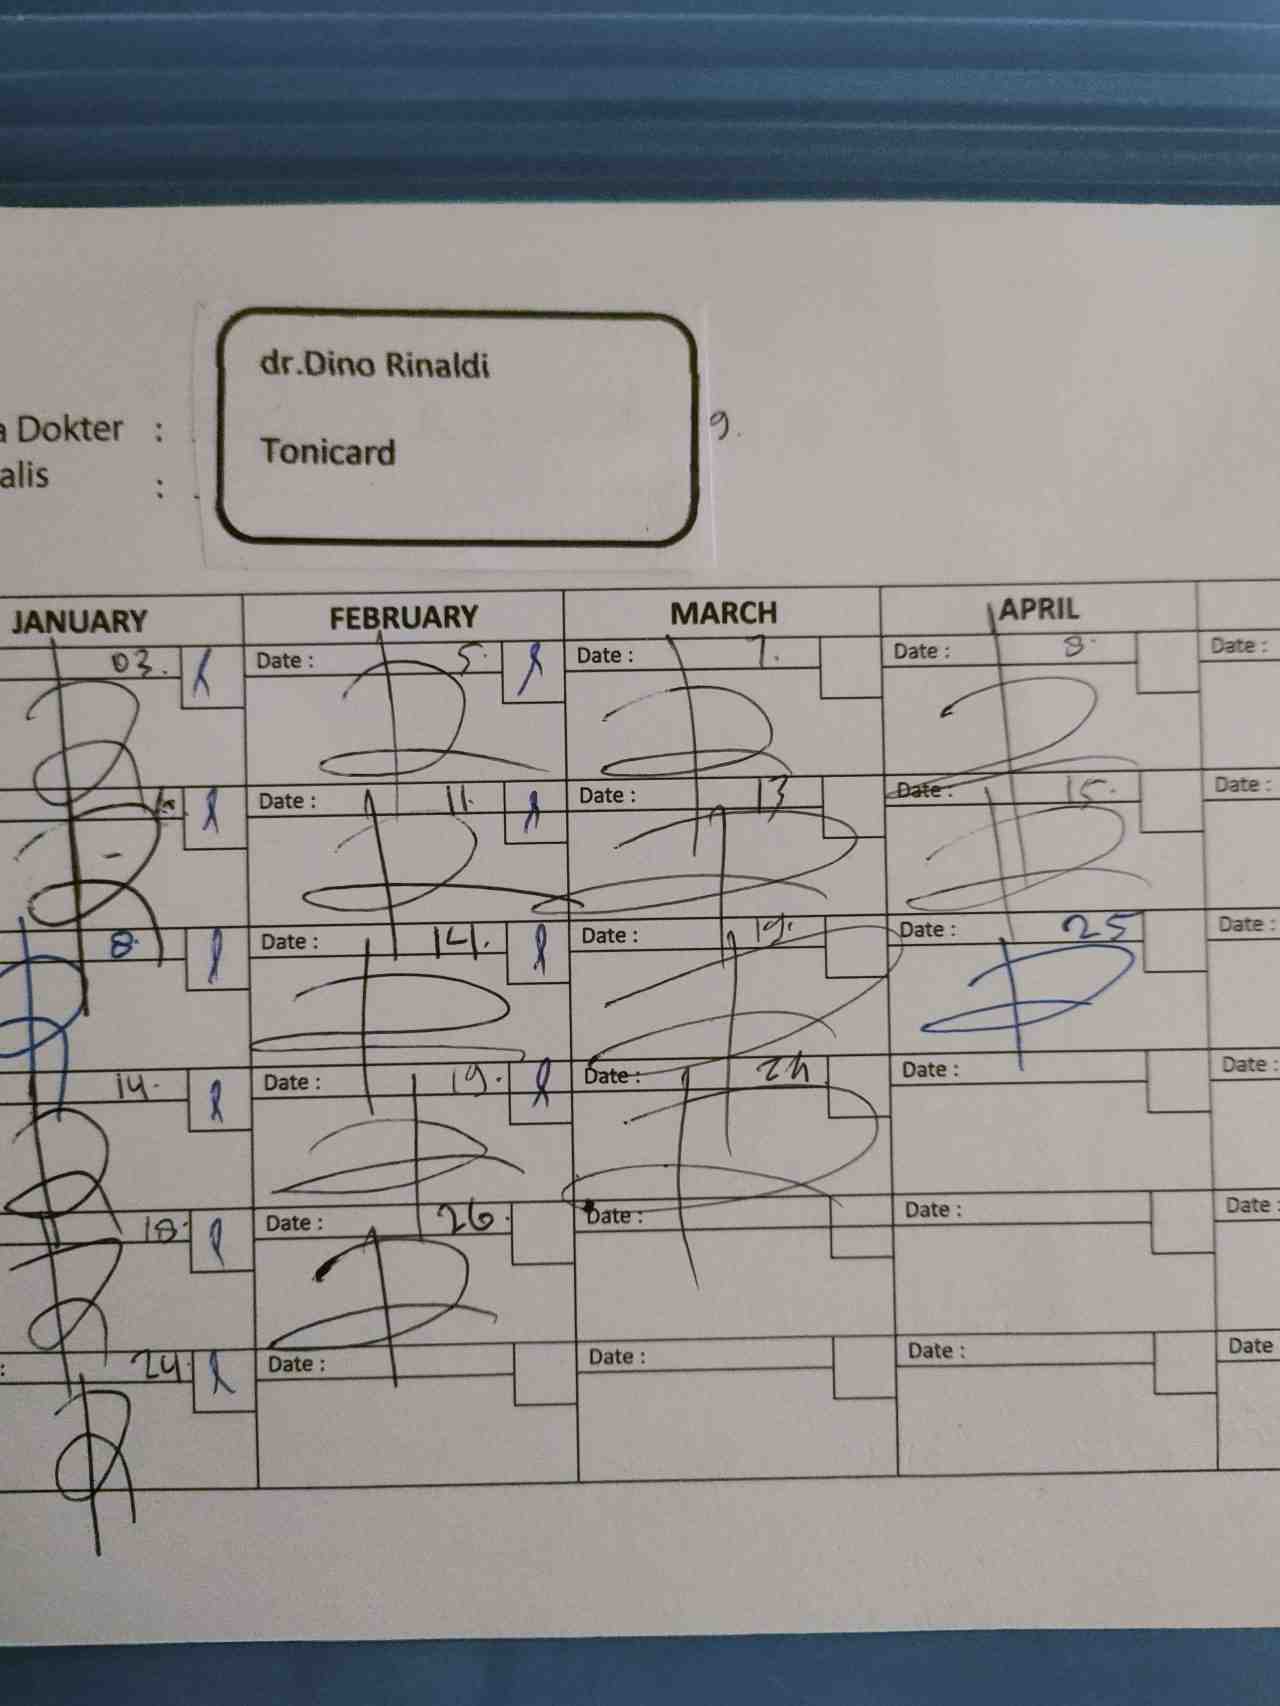 dr.Dino Rinaldi
a Dokter : g.
Tonicard
alis :
JANUARY FEBRUARY MARCH APRIL
03. Date : 5. Date : 7. Date : 8. Date :
Date : 11. Date : 13 Date : 15. Date :
8. Date : 14. Date : 19. Date : 25 Date :
14. Date : 19. Date : 24 Date : Date :
18. Date : 26. Date : Date : Date :
: 24. Date : Date : Date : Date